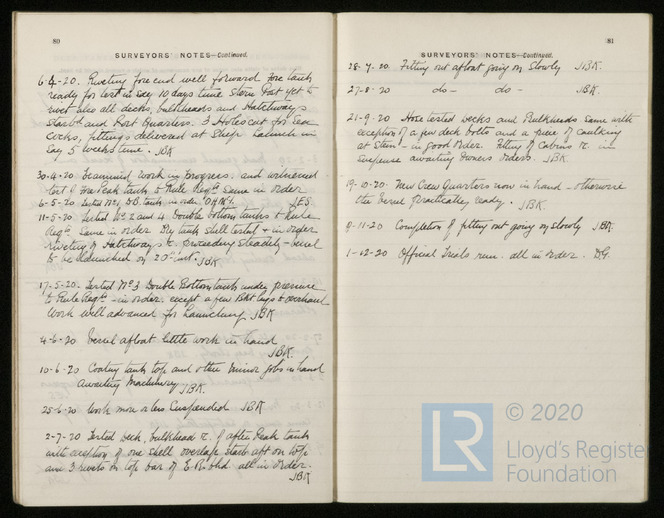 80
SURVEYORS' NOTES—Continued.
6-4-20. Riveting fore end well forward fore tank
ready for test in say 10 days time Stern Post yet to
rivet also all decks, bulkheads and Hatchways
Starbd and Port Quarters. 3 Holes cut for Sea
Cocks, fittings delivered at Ship Launch in
Say 5 weeks time. JBK
30-4-20 Examined work in progress. and witnessed
test of Fore Peak tank to Rule Reqts Same in order
6-5-20 Tested No. 1 DB tank in order JES.
11-5-20 Tested No. 2 and 4 Double bottom tanks to Rule
Reqts Same in order. Dry tank shell tested & in order
riveting of Hatchways &c. proceeding steadily - vessel
to be launched on 20th inst. JBK
17-5-20. Tested No 3 Double Bottom tank under pressure
to Rule Reqts - in order. except a few Bkt lugs to overhaul
Work well advanced for Launching JBK
4-6-20 Vessel afloat little work in hand
JBK.
10-6-20 Coating tank top and other minor jobs in hand
awaiting Machinery JBK.
25-6-20 Work more or less Suspended JBK
2-7-20 Tested deck, bulkhead &c. of after Peak tank
with exception of one shell overlap Starb aft on top
and 3 rivets on top bar of E.R. bhd all in order.
JBK
81
SURVEYORS' NOTES—Continued.
28-7-20 Fitting out afloat going on slowly JBK.
27-8-20 do - do - JBK.
21-9-20 Hose tested decks and Bulkheads same with
exception of a few deck bolts and a piece of caulking
at Stem - in good order. Fitting of Cabins &c. in
suspense awaiting Owners orders. JBK.
19-10-20. New Crew Quarters now in hand - otherwise
the vessel practically ready. JBK.
9-11-20 Completion of fitting out going on slowly JBK.
1-12-20 Official Trials run. all in order. D.G.
LR
© 2020
Lloyd's Register
Foundation